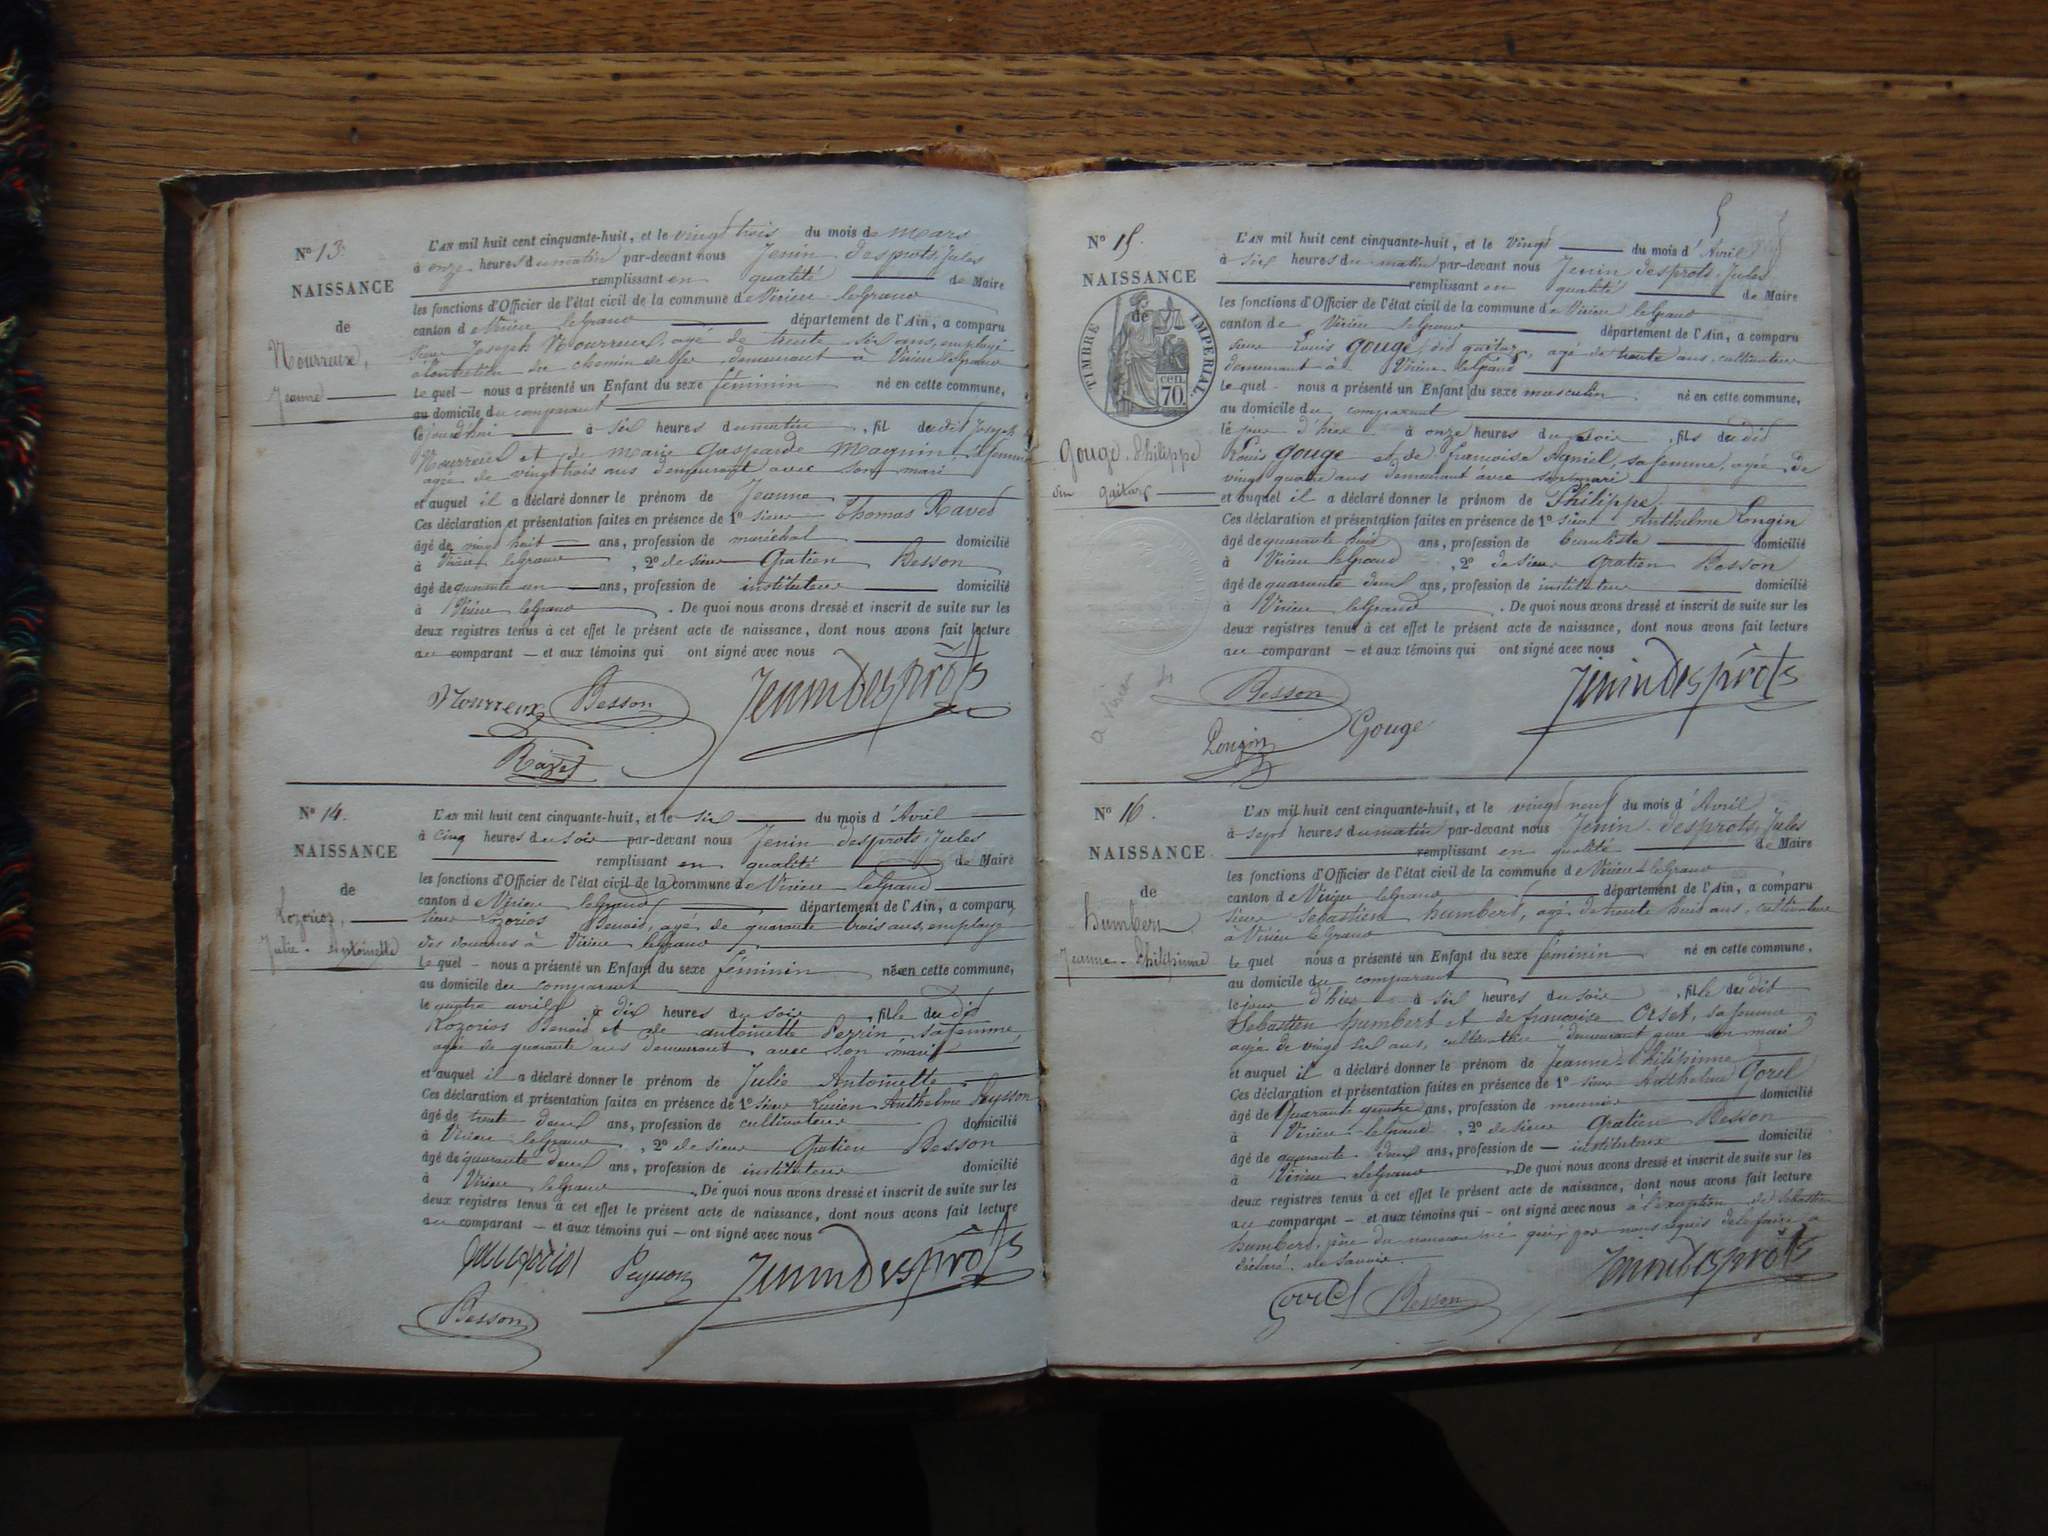 Nº 13.
NAISSANCE
de
Nourreux,
Jeanne
L'AN mil huit cent cinquante-huit, et le vingt trois du mois de mars
à onze heures du matin par-devant nous Jenin desprots, Jules
remplissant en qualité de Maire
les fonctions d'Officier de l'état civil de la commune de Virieu leGrand
canton de Virieu leGrand département de l'Ain, a comparu
sieur Joseph Nourreux, agé de trente six ans, employé
chemin de fer demeurant à Virieu leGrand
Le quel - nous a présenté un Enfant du sexe féminin né en cette commune,
au domicile du comparant
le jourd'hui à six heures du matin, fil du dit Joseph
Nourreux et de marie Gasparde Maguin, sa femme
agée de vingt trois ans demeurant avec son mari
et auquel il a déclaré donner le prénom de Jeanne
Ces déclaration et présentation faites en présence de 1º sieur Thomas Ravet
âgé de vingt huit ans, profession de maréchal domicilié
à Virieu leGrand, 2º de sieur Gratien Besson
âgé de quarante un ans, profession de instituteur domicilié
à Virieu leGrand. De quoi nous avons dressé et inscrit de suite sur les
deux registres tenus à cet effet le présent acte de naissance, dont nous avons fait lecture
au comparant - et aux témoins qui ont signé avec nous
Nourreux Besson Jenindesprôts
Ravet
Nº 14.
NAISSANCE
de
Rozorios,
Julie-Antoinette
L'AN mil huit cent cinquante-huit, et le six du mois d'Avril
à cinq heures du soir par-devant nous Jenin desprots, Jules
remplissant en qualité de Maire
les fonctions d'Officier de l'état civil de la commune de Virieu leGrand
canton de Virieu leGrand département de l'Ain, a comparu
sieur Rozorios Benoid, agé de quarante trois ans, employé
des douanes à Virieu leGrand
Le quel - nous a présenté un Enfant du sexe féminin née en cette commune,
au domicile du comparant
le quatre avril, à dix heures du soir, fille du dit
Rozorios Benoid et de antoinette Perrin, sa femme
agée de quarante ans demeurant avec son mari
et auquel il a déclaré donner le prénom de Julie Antoinette
Ces déclaration et présentation faites en présence de 1º sieur Lucien Anthelme Peysson
âgé de trente deux ans, profession de cultivateur domicilié
à Virieu leGrand, 2º de sieur Gratien Besson
âgé de quarante deux ans, profession de instituteur domicilié
à Virieu leGrand. De quoi nous avons dressé et inscrit de suite sur les
deux registres tenus à cet effet le présent acte de naissance, dont nous avons fait lecture
au comparant - et aux témoins qui - ont signé avec nous
Peysson Jenindesprôts
Besson
5
Nº 15.
NAISSANCE
de
TIMBRE IMPERIAL.
cen.
70
Gouge. Philippe
dit guitar
L'AN mil huit cent cinquante-huit, et le vingt du mois d'Avril
à six heures du matin par-devant nous Jenin desprots, Jules
remplissant en qualité de Maire
les fonctions d'Officier de l'état civil de la commune de Virieu leGrand
canton de Virieu leGrand département de l'Ain, a comparu
sieur Louis Gouge, dit guitar, agé de trente ans, cultivateur
demeurant à Virieu leGrand
Le quel - nous a présenté un Enfant du sexe masculin né en cette commune,
au domicile du comparant
le jour d'hier à onze heures du soir, fils du dit
Louis Gouge et de françoise Agniel, sa femme, agée de
vingt quatre ans demeurant avec son mari
et auquel il a déclaré donner le prénom de Philippe
Ces déclaration et présentation faites en présence de 1º sieur Anthelme Longin
âgé de quarante huit ans, profession de domicilié
à Virieu leGrand, 2º de sieur Gratien Besson
âgé de quarante deux ans, profession de instituteur domicilié
à Virieu leGrand. De quoi nous avons dressé et inscrit de suite sur les
deux registres tenus à cet effet le présent acte de naissance, dont nous avons fait lecture
au comparant - et aux témoins qui ont signé avec nous
Besson Jenindesprôts
Longin Gouge
a Virieu
Nº 16.
NAISSANCE
de
humbert
Jeanne-Philépinne
L'AN mil huit cent cinquante-huit, et le vingt neuf du mois d'Avril
à sept heures du matin par-devant nous Jenin-desprots, Jules
remplissant en qualité de Maire
les fonctions d'Officier de l'état civil de la commune de Virieu-leGrand
canton de Virieu leGrand département de l'Ain, a comparu
sieur Sébastien humbert, agé de trente huit ans, cultivateur
à Virieu leGrand
Le quel nous a présenté un Enfant du sexe féminin né en cette commune,
au domicile du comparant
le jour d'hier à six heures du soir, fille du dit
Sébastien humbert et de françoise Orset, sa femme
agée de vingt six ans, cultivatrice demeurant avec son mari
et auquel il a déclaré donner le prénom de Jeanne-Philépinne
Ces déclaration et présentation faites en présence de 1º sieur Anthelme Gorel
âgé de Quarante quatre ans, profession de meunier domicilié
à Virieu-leGrand, 2º de sieur Gratien Besson
âgé de quarante deux ans, profession de - instituteur domicilié
à Virieu leGrand. De quoi nous avons dressé et inscrit de suite sur les
deux registres tenus à cet effet le présent acte de naissance, dont nous avons fait lecture
au comparant - et aux témoins qui - ont signé avec nous à l'exception de Sébastien
humbert, père du nouveau né qui, par nous requis de le faire a
déclaré ne savoir.
Gorel Besson Jenindesprôts